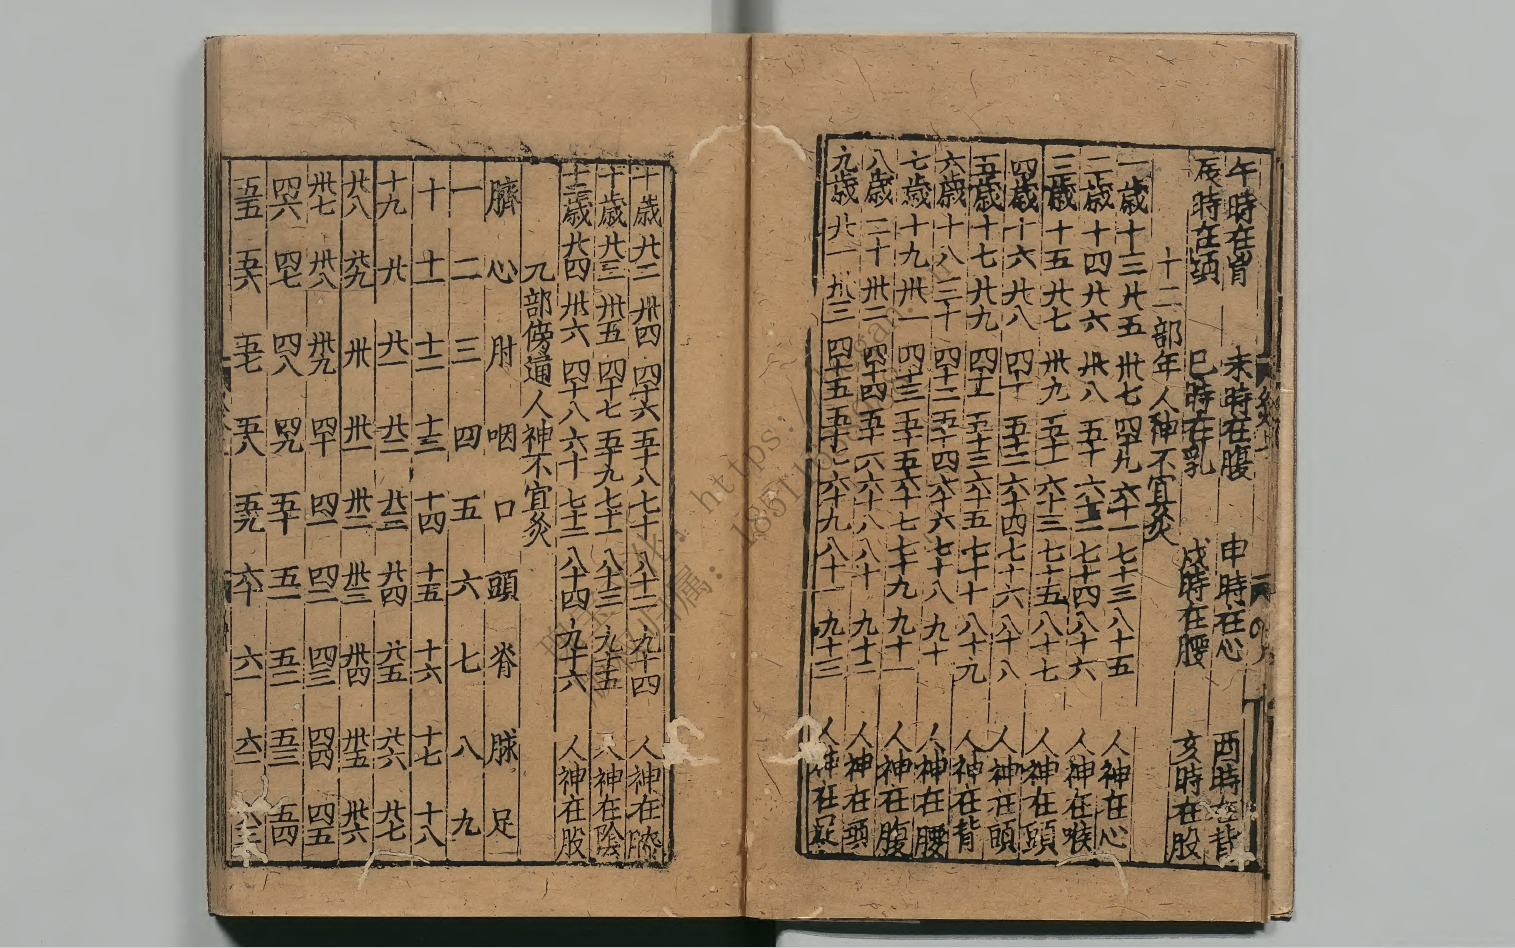 午時在胷 未時在腹 申時在心 酉時在背
辰時在頭 巳時在乳 戌時在腰 亥時在股
十二部年人神不宜灸
一歲 十三 廿五 卅七 四十九 六十一 七十三 八十五 人神在心
二歲 十四 廿六 卅八 五十 六十二 七十四 八十六 人神在喉
三歲 十五 廿七 卅九 五十一 六十三 七十五 八十七 人神在頭
四歲 十六 廿八 四十 五十二 六十四 七十六 八十八 人神在頭
五歲 十七 廿九 四十一 五十三 六十五 七十七 八十九 人神在背
六歲 十八 三十 四十二 五十四 六十六 七十八 九十 人神在腰
七歲 十九 卅一 四十三 五十五 六十七 七十九 九十一 人神在腹
八歲 二十 卅二 四十四 五十六 六十八 八十 九十二 人神在頭
九歲 廿一 卅三 四十五 五十七 六十九 八十一 九十三 人神在足
十歲 廿二 卅四 四十六 五十八 七十 八十二 九十四 人神在膝
十一歲 廿三 卅五 四十七 五十九 七十一 八十三 九十五 人神在陰
十二歲 廿四 卅六 四十八 六十 七十二 八十四 九十六 人神在股
九部傍通人神不宜灸
臍 心 肘 咽 口 頭 脊 膝 足
一 二 三 四 五 六 七 八 九
十 十一 十二 十三 十四 十五 十六 十七 十八
十九 廿 廿一 廿二 廿三 廿四 廿五 廿六 廿七
廿八 廿九 卅 卅一 卅二 卅三 卅四 卅五 卅六
卅七 卅八 卅九 四十 四一 四二 四三 四四 四五
四六 四七 四八 四九 五十 五一 五二 五三 五四
五五 五六 五七 五八 五九 六十 六一 六二 六三